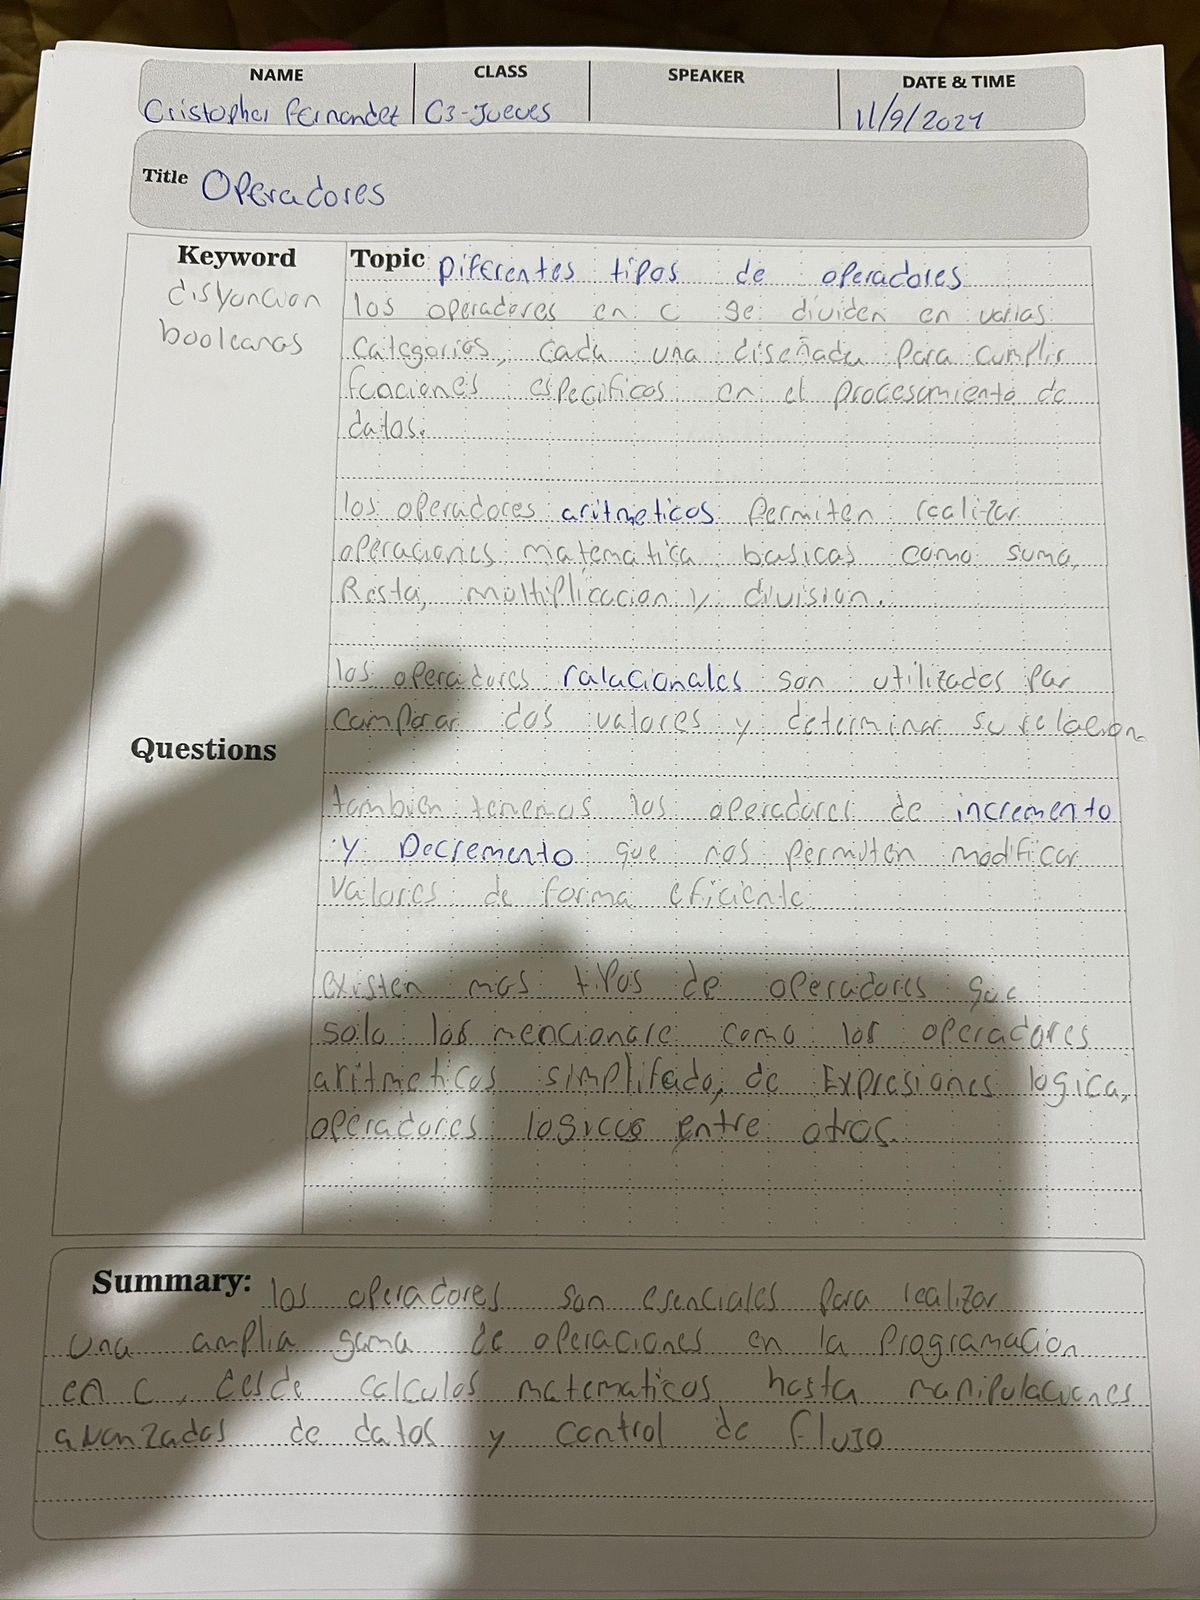 NAME
CLASS
SPEAKER
DATE & TIME
Cristopher Fernandez
C3-Jueves
11/9/2024
Title Operadores
Keyword
disyuncion
booleanas
Topic Diferentes tipos de operadores
los operadores en C se dividen en varias
Categorias, cada una diseñada para cumplir
fcaciones especificos en el procesamiento de
datos.
los operadores aritmeticos Permiten realizar
operaciones matematica basicas como suma,
Resta, multiplicacion y division.
los operadores ralacionales son utilizados par
comparar dos valores y determinar su relacion
Questions
tambien tenemos los operadores de incremento
y Decremento que nos permiten modificar
Valores de forma eficiente
existen mas tipos de operadores que
solo los mencionare como los operadores
aritmeticos simplifado, de Expresiones logica,
operadores logicos entre otros.
Summary: los operadores son esenciales para realizar
una amplia gama de operaciones en la Programacion
en C, desde calculos matematicos hasta manipulaciones
avanzadas de datos y control de flujo